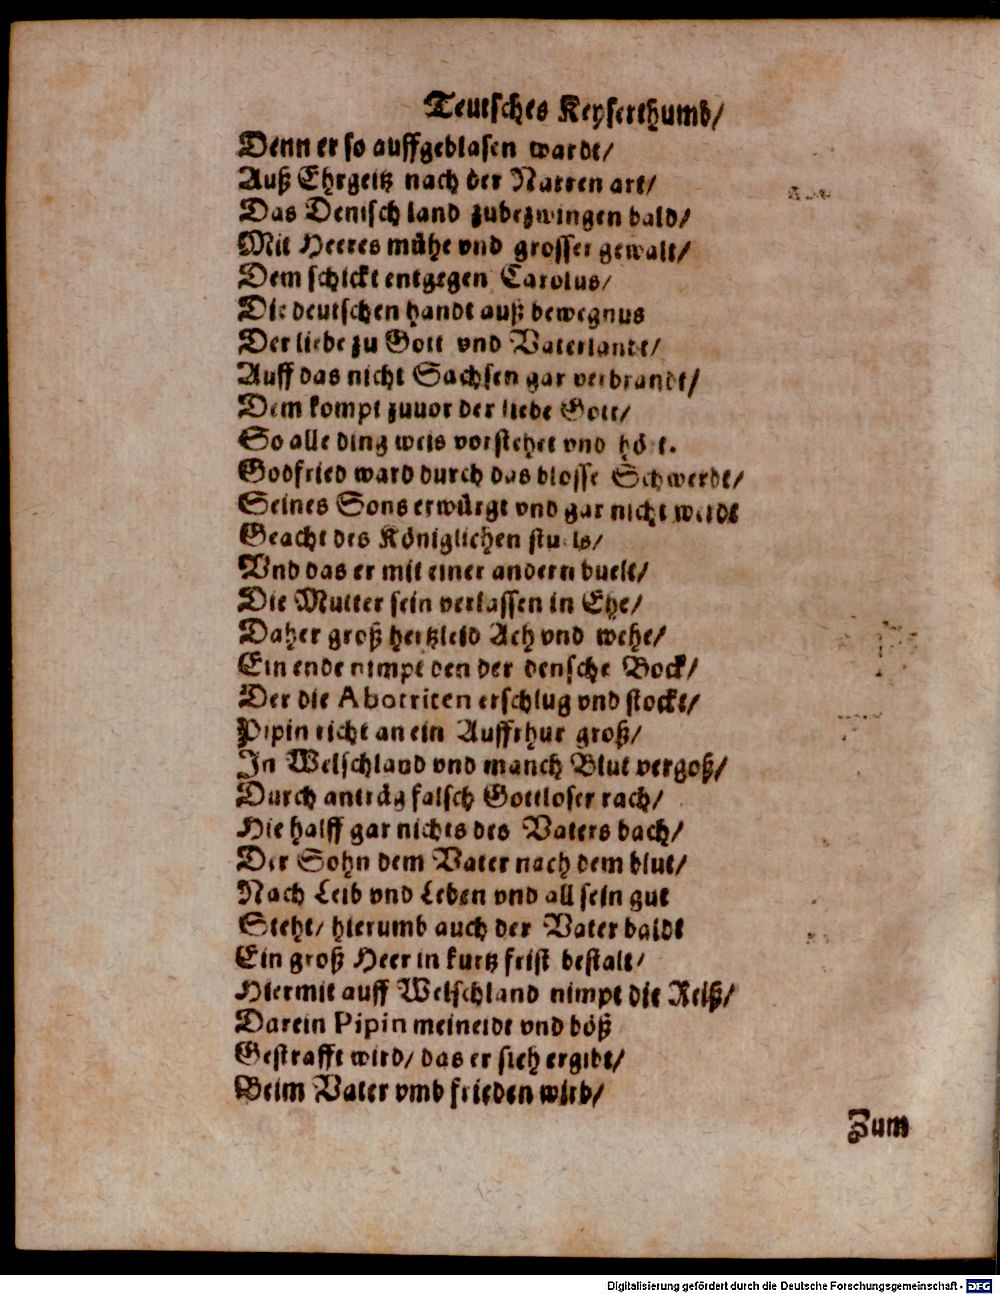 Teutsches Keyserthumb/
Denn er so auffgeblasen wardt/
Auß Ehrgeitz nach der Narren art/
Das Deutsch land zubezwingen bald/
Mit Heeres mühe vnd grosser gewalt/
Dem schickt entgegen Carolus/
Die deutschen handt auß bewegnus
Der liebe zu Gott vnd Vaterlandt/
Auff das nicht Sachsen gar verbrandt/
Dem kompt zuuor der liebe Gott/
So alle ding weis vorstehet vnd
Godfried ward durch das blosse Schwerdt/
Seines Sons erwürgt vnd gar nicht werdt
Geacht des Königlichen stuels/
Vnd das er mit einer andern buelt/
Die Mutter sein verlassen in Ehe/
Daher groß hertzleid Ach vnd wehe/
Ein ende nimpt den der densche Bock/
Der die Abotriten erschlug vnd stockt/
Pipin richt an ein Auffrhur groß/
In Welschland vnd manch Blut vergoß/
Durch anträg falsch Gottloser rach/
Hie halff gar nichts des Vaters dach/
Der Sohn dem Vater nach dem blut/
Nach Leib vnd Leben vnd all sein gut
Steht/ hierumb auch der Vater baldt
Ein groß Heer in kurtz frist bestalt/
Hiermit auff Welschland nimpt die Reiß/
Darein Pipin meineidt vnd böß
Gestrafft wird/ das er sich ergibt/
Beim Vater vmb frieden wirb/
Zum
Digitalisierung gefördert durch die Deutsche Forschungsgemeinschaft - DFG